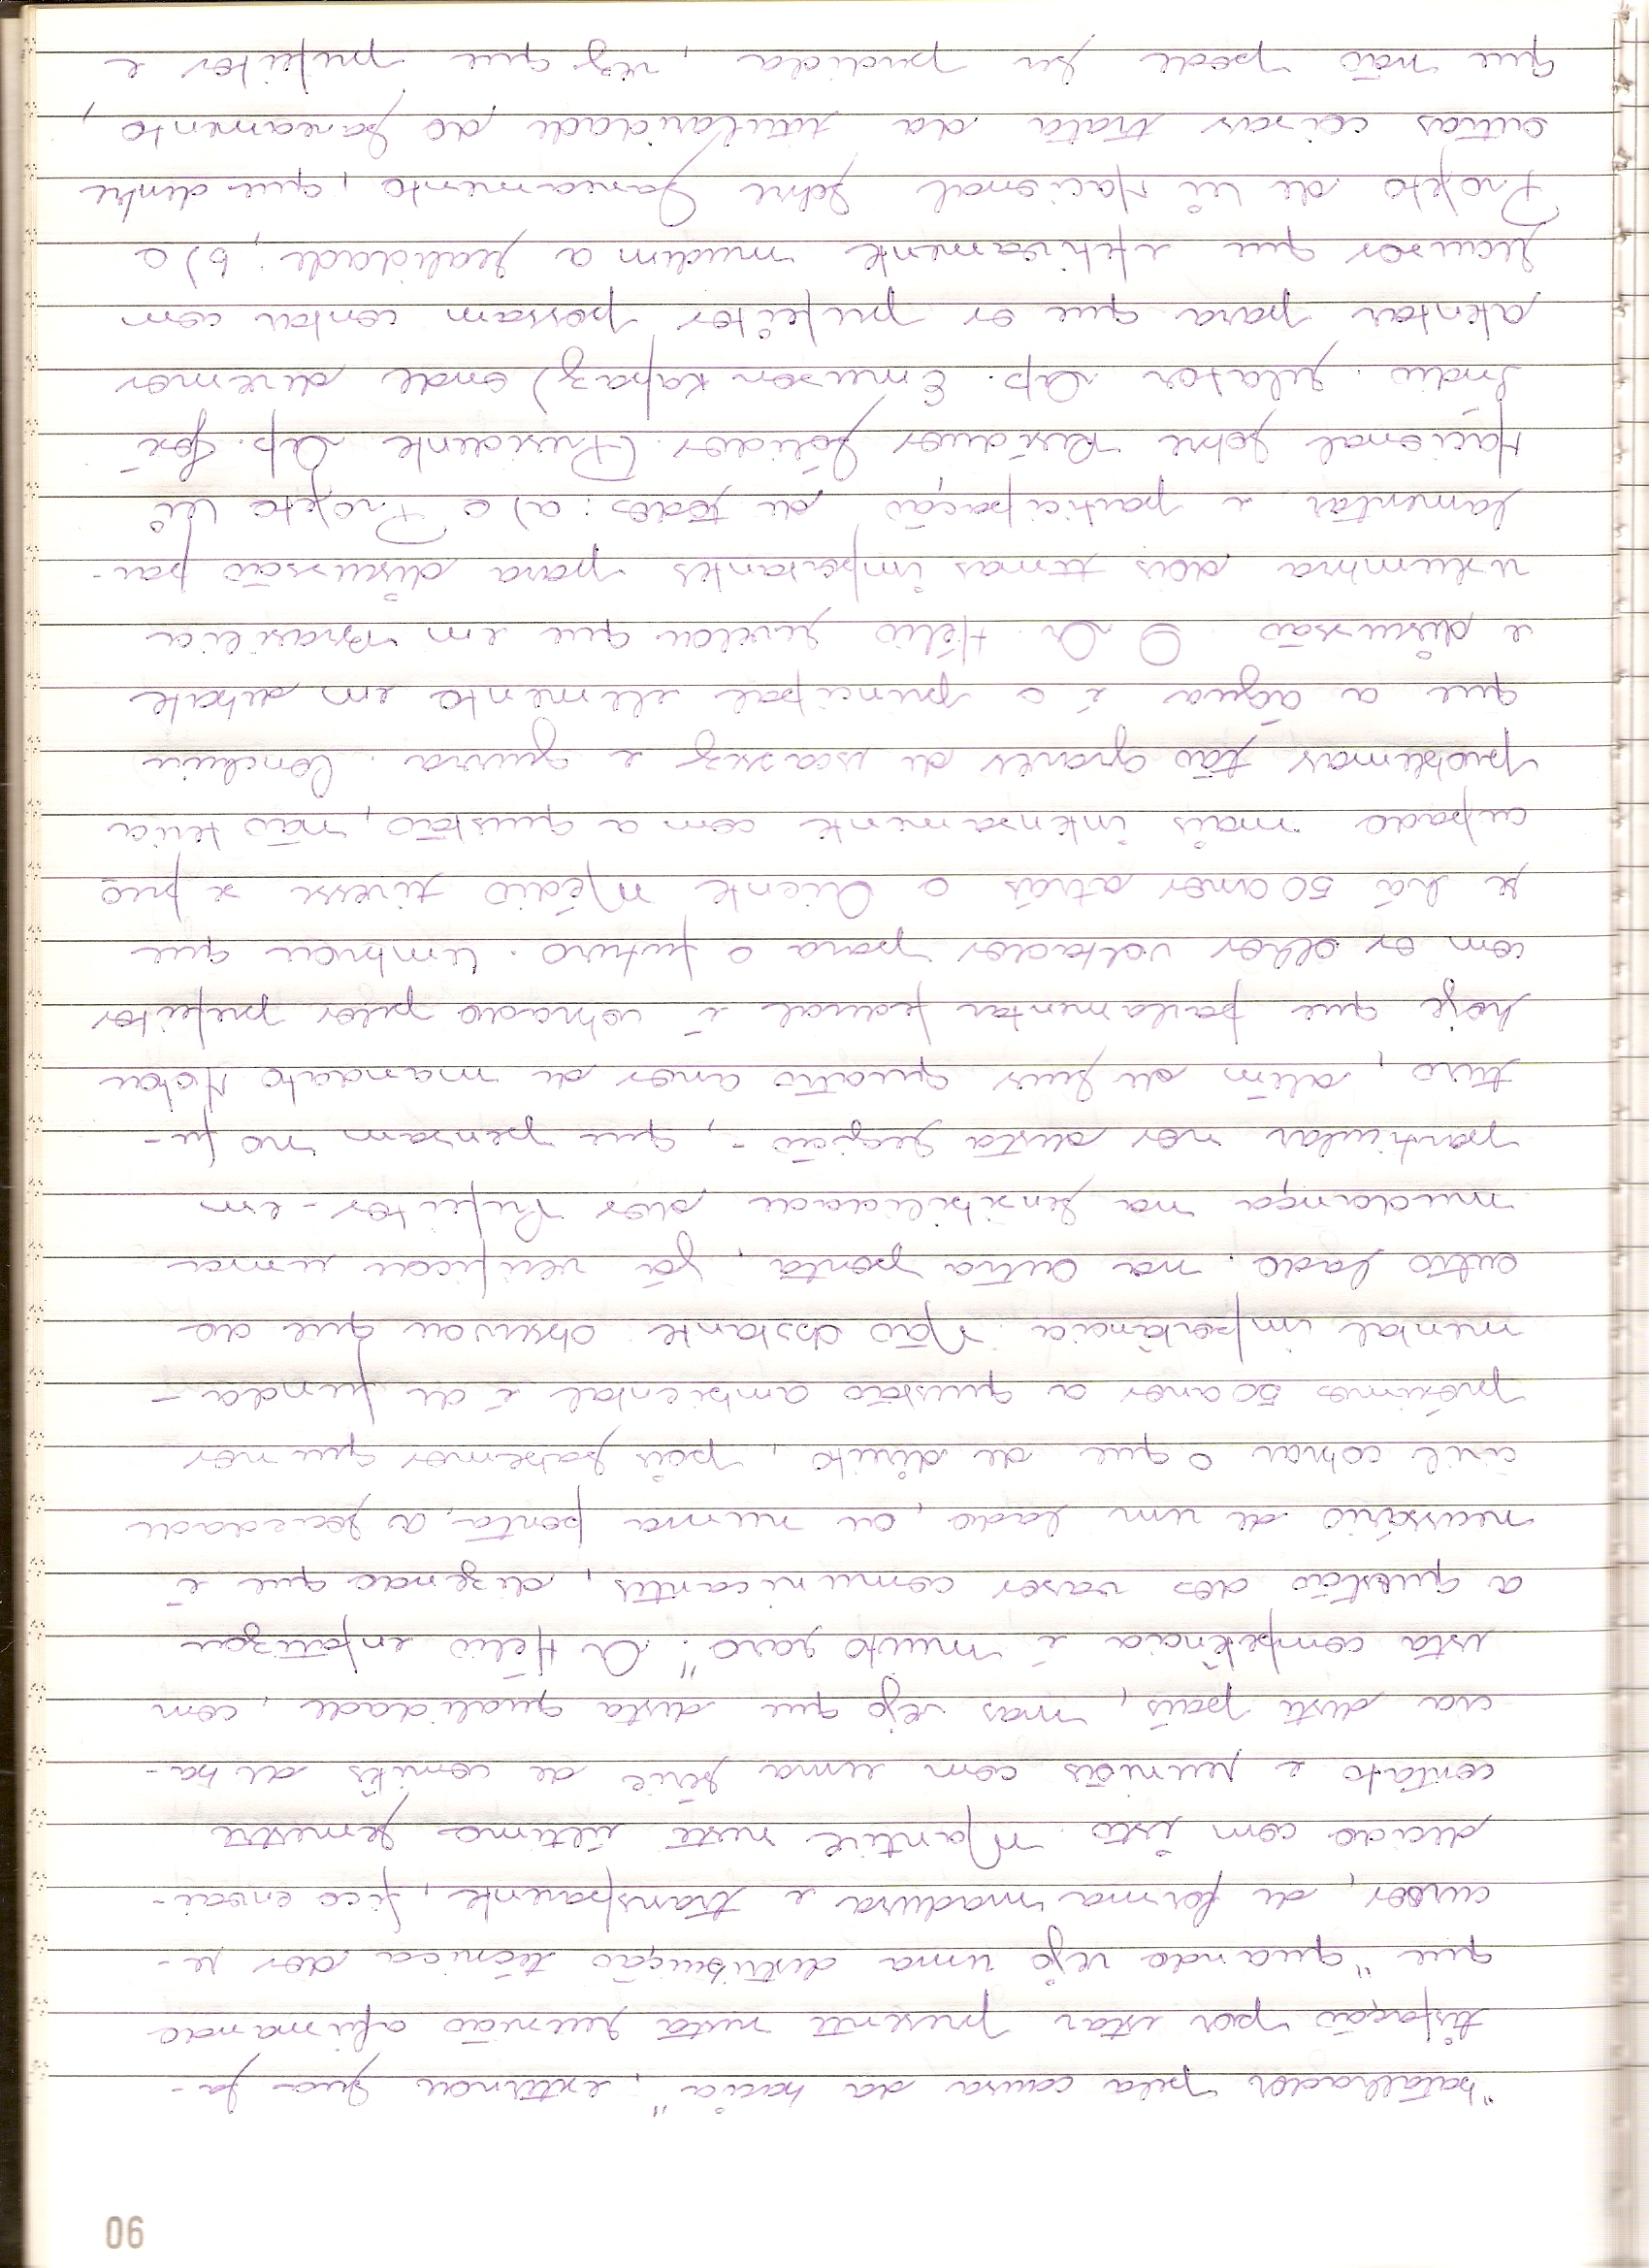 06
"batalhador pela causa da bacia", externou sua sa-
tisfação por estar presente nesta reunião afirmando
que "quando vejo uma distribuição técnica dos re-
cursos, de forma madura e transparente, fico envai-
decido com isto. Mantive neste último semestre
contato e reuniões com uma série de comitês de ba-
cia deste país, mas vejo que desta qualidade, com
esta competência é muito raro". Dr Hélio enfatizou
a questão dos vasos comunicantes, dizendo que é
necessário de um lado, ou numa ponta, a sociedade
civil cobrar o que de direito, pois sabemos que nos
próximos 50 anos a questão ambiental é de funda-
mental importância. Não obstante observou que do
outro lado, na outra ponta, já verificou uma
mudança na sensibilidade dos Prefeitos - em
particular nos desta região -, que pensam no fu-
turo, além de seus quatro anos de mandato. Notou
hoje que parlamentar federal é cobrado pelos prefeitos
com os olhos voltados para o futuro. Lembrou que
se há 50 anos atrás o Oriente Médio tivesse se preo
cupado mais intensamente com a questão, não teria
problemas tão graves de escassez e guerra. Concluiu
que a água é o principal elemento em debate
e discussão. O Dr. Hélio revelou que em Brasília
vislumbra dois temas importantes para discussão par-
lamentar e participação de todos: a) o Projeto Lei
Nacional sobre Resíduos Sólidos (Presidente Dep. José
Índio, relator Dep. Emerson Kapaz) onde devemos
atentar para que os prefeitos possam contar com
recursos que efetivamente mudem a realidade; b) o
Projeto de Lei Nacional sobre Saneamento, que dentre
outras coisas trata da titularidade do saneamento,
que não pode ser perdida, vez que prefeitos e